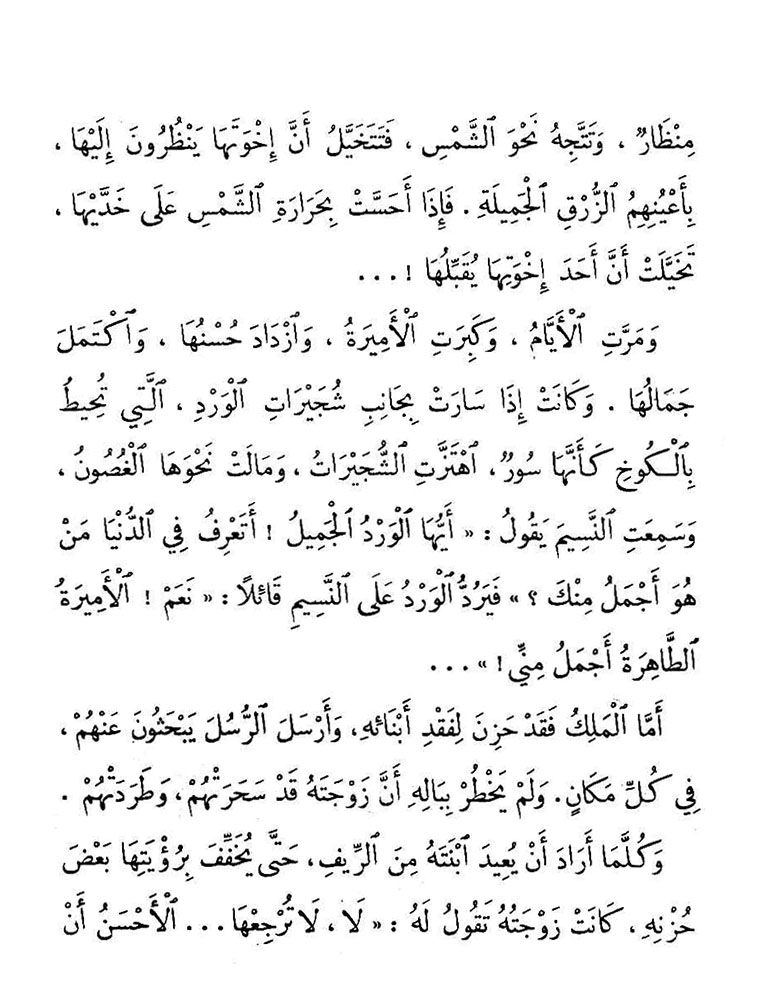 مِنْظَارٌ ، وَتَتَّجِهُ نَحْوَ ٱلشَّمْسِ ، فَتَتَخَيَّلُ أَنَّ إِخْوَتَهَا يَنْظُرُونَ إِلَيْهَا ،
بِأَعْيُنِهِمُ ٱلزُّرْقِ ٱلْجَمِيلَةِ . فَإِذَا أَحَسَّتْ بِحَرَارَةِ ٱلشَّمْسِ عَلَى خَدَّيْهَا ،
تَخَيَّلَتْ أَنَّ أَحَدَ إِخْوَتِهَا يُقَبِّلُهَا ! ...
وَمَرَّتِ ٱلْأَيَّامُ ، وَكَبِرَتِ ٱلْأَمِيرَةُ ، وَٱزْدَادَ حُسْنُهَا ، وَٱكْتَمَلَ
جَمَالُهَا . وَكَانَتْ إِذَا سَارَتْ بِجَانِبِ شُجَيْرَاتِ ٱلْوَرْدِ ، ٱلَّتِي تُحِيطُ
بِٱلْكُوخِ كَأَنَّهَا سُورٌ ، ٱهْتَزَّتِ ٱلشُّجَيْرَاتُ ، وَمَالَتْ نَحْوَهَا ٱلْغُصُونُ ،
وَسَمِعَتِ ٱلنَّسِيمَ يَقُولُ : « أَيُّهَا ٱلْوَرْدُ ٱلْجَمِيلُ ! أَتَعْرِفُ فِي ٱلدُّنْيَا مَنْ
هُوَ أَجْمَلُ مِنْكَ ؟ » فَيَرُدُّ ٱلْوَرْدُ عَلَى ٱلنَّسِيمِ قَائلًا : « نَعَمْ ! ٱلْأَمِيرَةُ
ٱلطَّاهِرَةُ أَجْمَلُ مِنِّي ! » ...
أَمَّا ٱلْمَلِكُ فَقَدْ حَزِنَ لِفَقْدِ أَبْنَائهِ ، وَأَرْسَلَ ٱلرُّسُلَ يَبْحَثُونَ عَنْهُمْ ،
فِي كُلِّ مَكَانٍ . وَلَمْ يَخْطُرْ بِبَالِهِ أَنَّ زَوْجَتَهُ قَدْ سَحَرَتْهُمْ ، وَطَرَدَتْهُمْ .
وَكُلَّمَا أَرَادَ أَنْ يُعِيدَ ٱبْنَتَهُ مِنَ ٱلرِّيفِ ، حَتَّى يُخَفِّفَ بِرُؤْيَتِهَا بَعْضَ
حُزْنِهِ ، كَانَتْ زَوْجَتُهُ تَقُولُ لَهُ : « لَا ، لَا تُرْجِعْهَا ... ٱلْأَحْسَنُ أَنْ